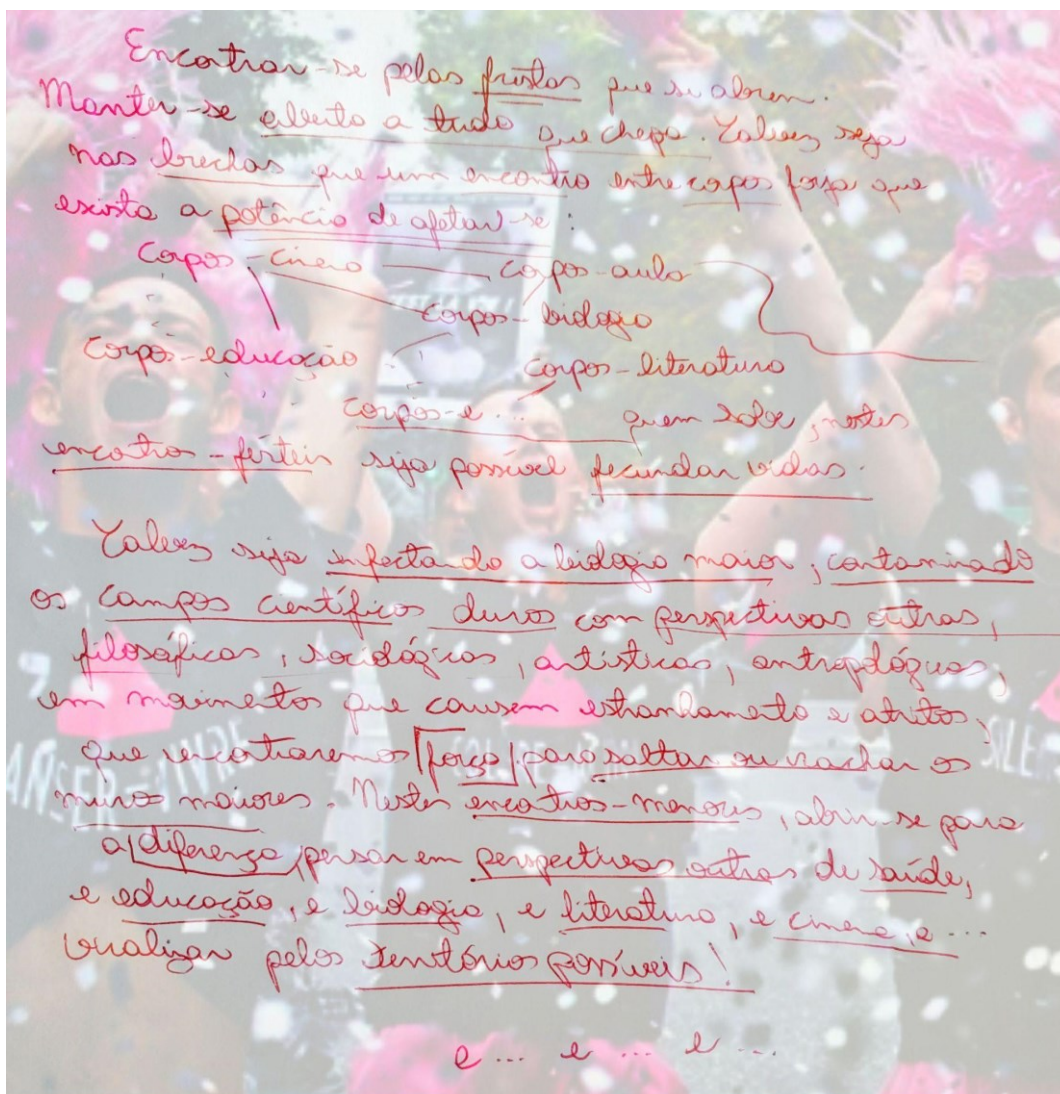 Encontrar-se pelas frestas que se abrem.
Manter-se aberto a tudo que chega. Talvez seja
nas brechas que um encontro entre corpos força que
exista a potência de afetar-se:
Corpos-cinema corpos-aula
corpos-biologia
corpos-educação corpos-literatura
corpos-e... quem sabe, nestes
encontros-férteis seja possível fecundar vidas.
Talvez seja infectando a biologia maior, contaminado
os campos científicos duros com perspectivas outras,
filosóficas, sociológicas, artísticas, antropológicas,
em movimentos que causem estranhamento e atritos,
que encontraremos força para saltar ou rachar os
muros maiores. Nestes encontros-menores, abrir-se para
a diferença, pensar em perspectivas outras de saúde,
e educação, e biologia, e literatura, e cinema, e ...
viralizar pelos territórios possíveis!
e ... e ... e ...